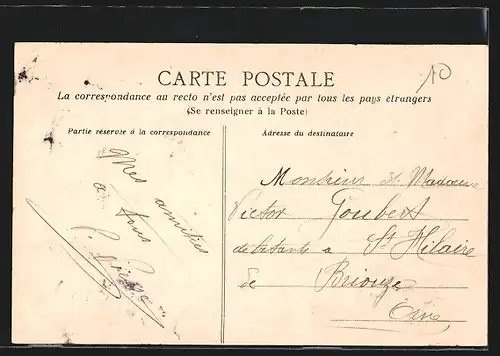 CARTE POSTALE
La correspondance au recto n'est pas acceptée par tous les pays étrangers
(Se renseigner à la Poste)
Partie réservée à la correspondance
Mes amitiés
à tous
Adresse du destinataire
Monsieur et Madame
Victor Goubert
débitants à St Hilaire
de Briouze
Orne
10